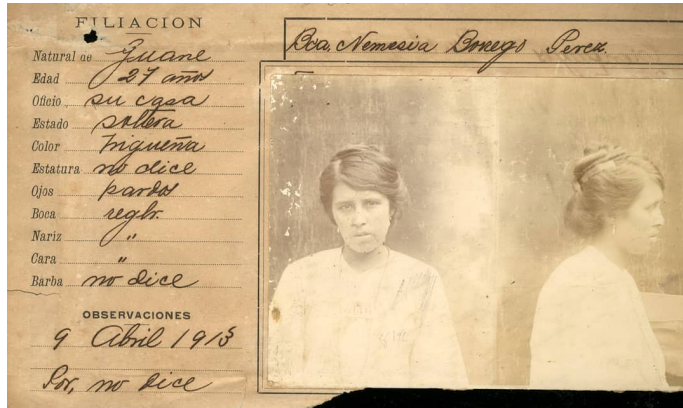 FILIACION
Natural de Guane
Edad 27 años
Oficio su casa
Estado soltera
Color trigueña
Estatura no dice
Ojos pardos
Boca reglr.
Nariz "
Cara "
Barba no dice
OBSERVACIONES
9 Abril 1913
Por, no dice
Bca. Nemesia Borrego Perez.